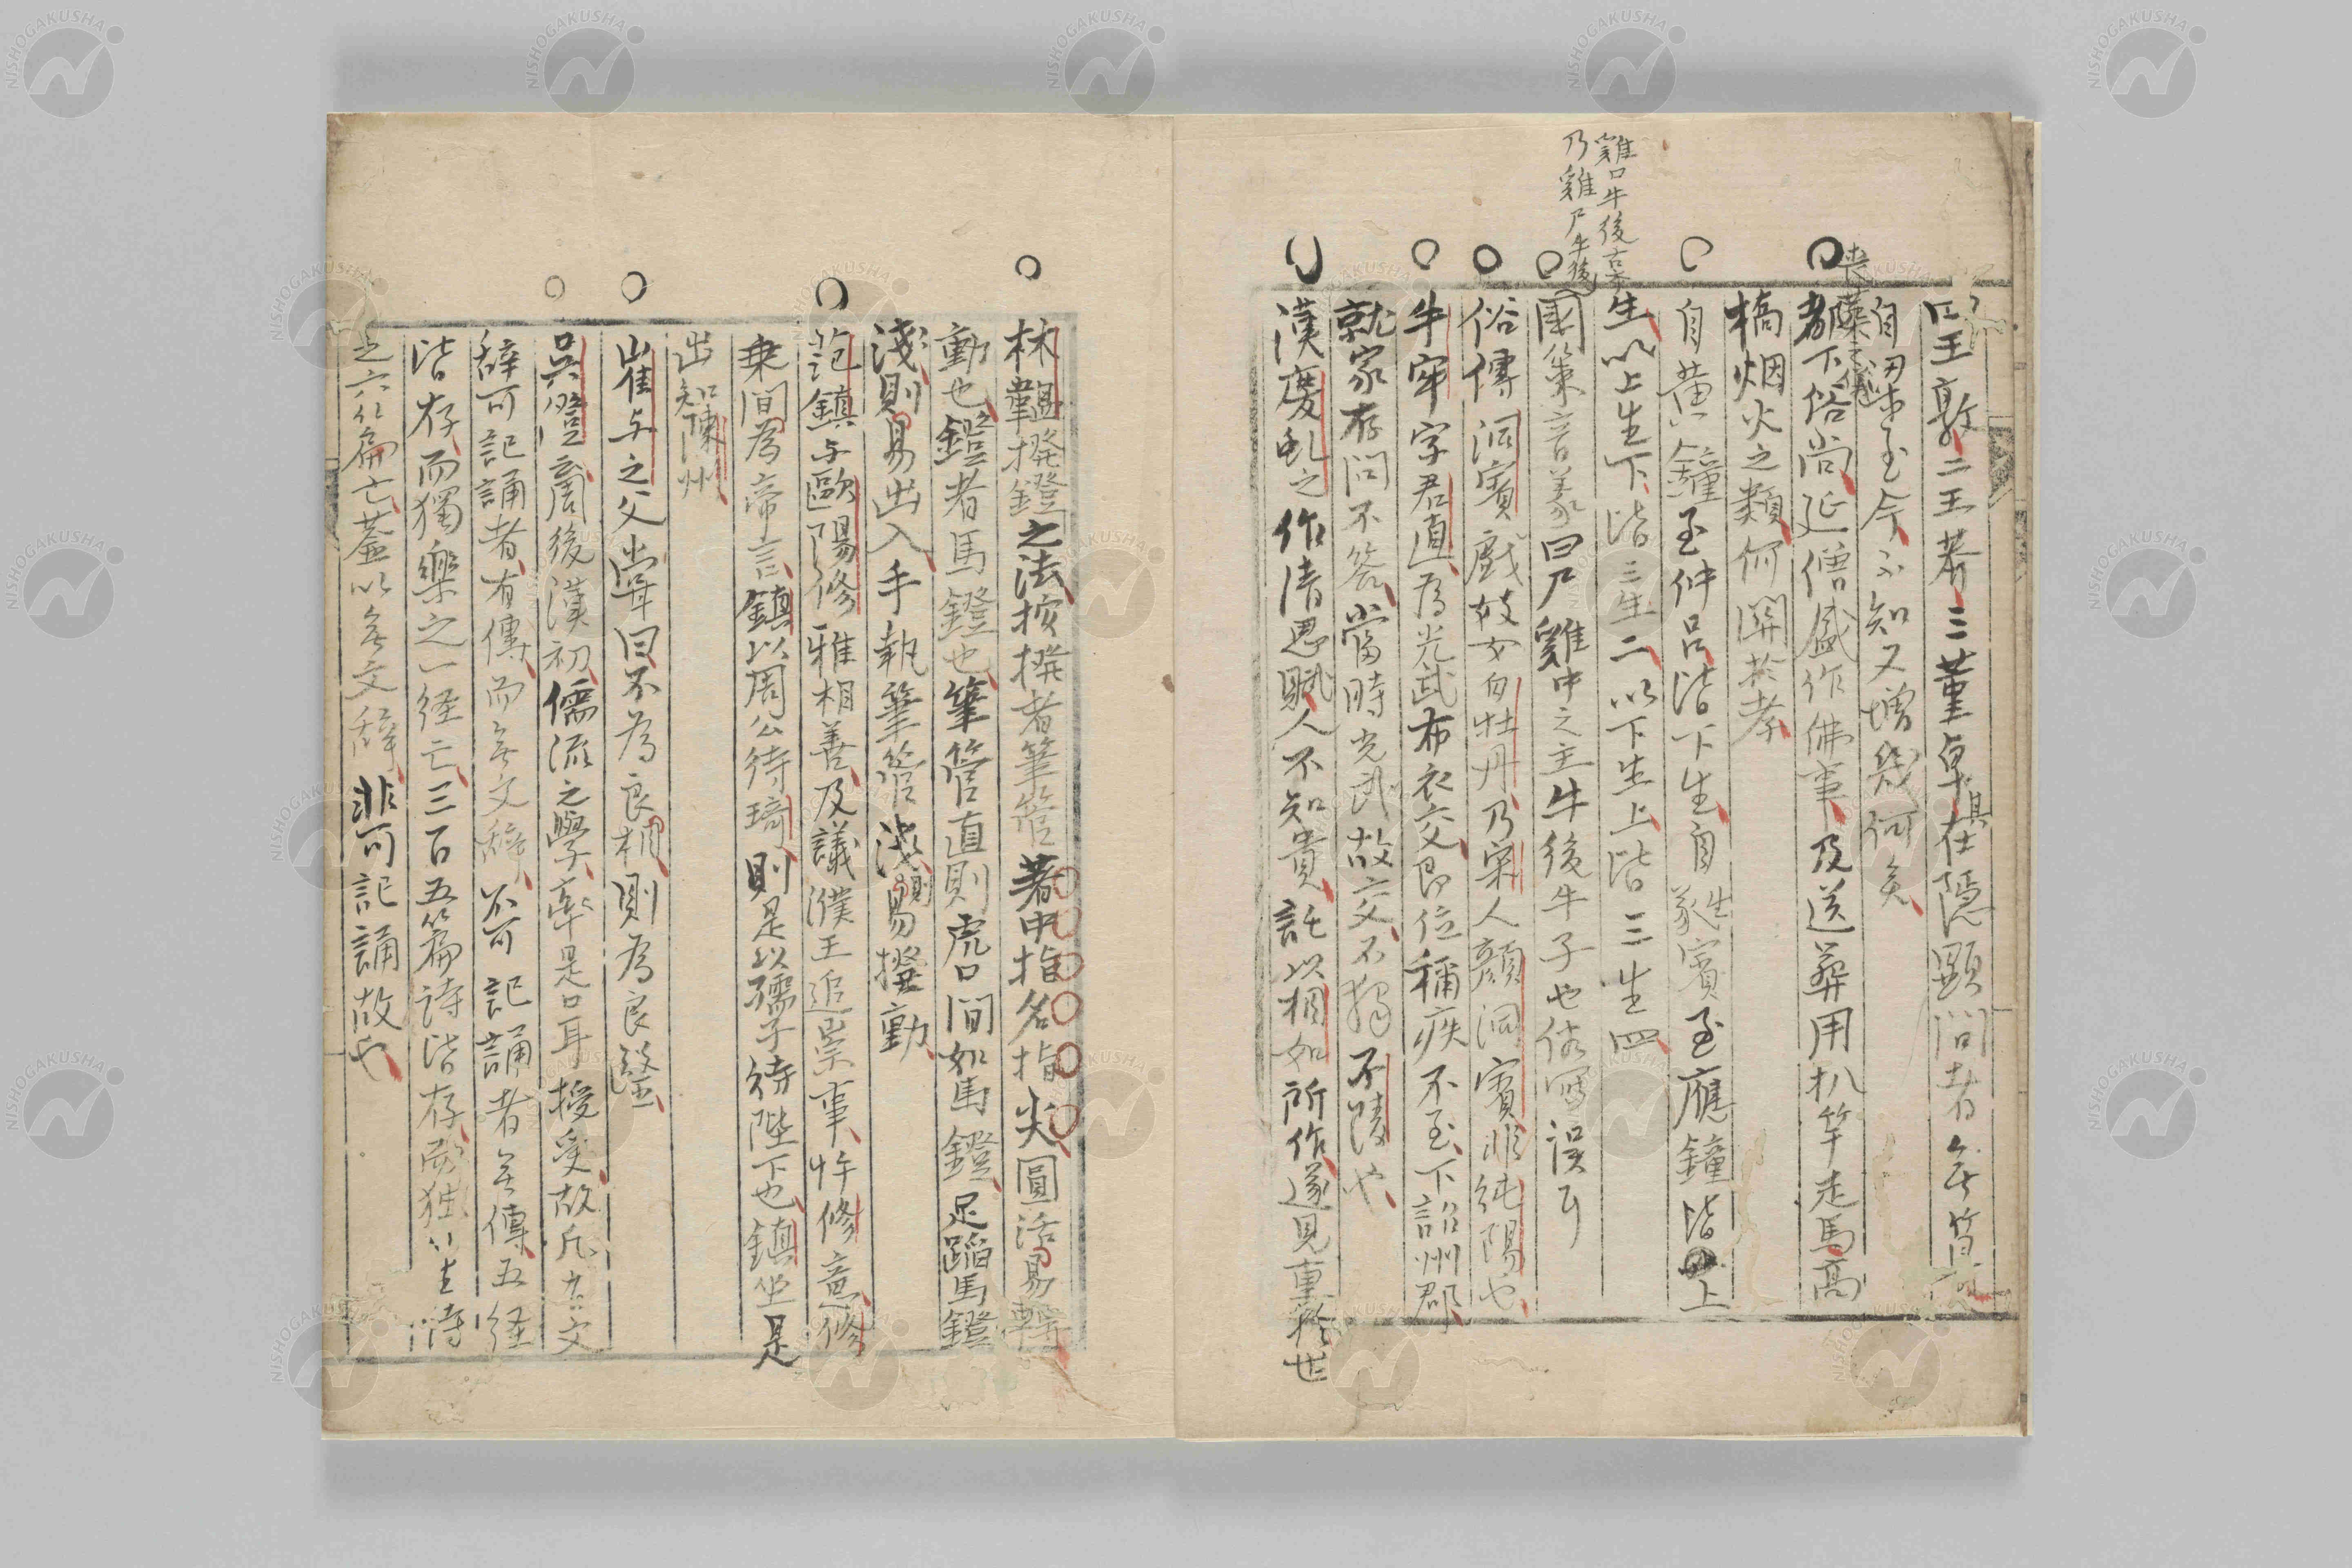 雞口牛後古本
乃雞尸牛後
臣王敦二王莽三董卓其在隠顕間者無筭
自羿浞至今不知又增幾何矣
喪葬之儀
都下俗尚延僧盛作佛事及送葬用扒竿走馬高
橋烟火之類何関於孝
自黄鐘至仲呂皆下生自蕤賓至應鐘皆上
生以上生下皆三生二以下生上皆三生四
國策音義曰尸雞中之主牛後牛子也俗写誤耳
俗傳洞賓戲妓女白牡丹乃宋人顔洞賓非純陽也
牛牢字君直為光武布衣交即位稱疾不至下詔州郡
就家存問不答當時光武故交不獨子陵也
漢慶虬之作清思賦人不知貴託以相如所作遂見重於世
林韞撥鐙之法按撥者筆管著中指名指尖圓活易轉
動也鐙者馬鐙也筆管直則虎口間如馬鐙足蹈馬鐙
淺則易出入手執筆管淺則易撥動
范鎮与歐陽修雅相善及議濮王追崇事忤修意修
乗間為帝言鎮以周公待琦則是以孺子待陛下也鎮坐是
出知陳州
崔与之父嘗曰不為良相則為良醫
吳澄商後漢初儒流之學牽是口耳授受故凡古文
辞可記誦者有傳而無文辞不可記誦者無傳五経
皆存而獨樂之一経亡三百五篇詩皆存而独笙詩
之六篇亡蓋以無文辞非可記誦故也
NISHOGAKUSHA